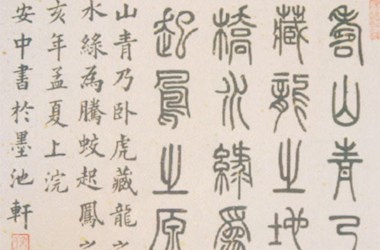 山青乃
藏龍之地
橋水綠為
起鳳之原
山青乃卧虎藏龍之
水綠為騰蛟起鳳之
亥年孟夏上浣
安中書於墨池軒